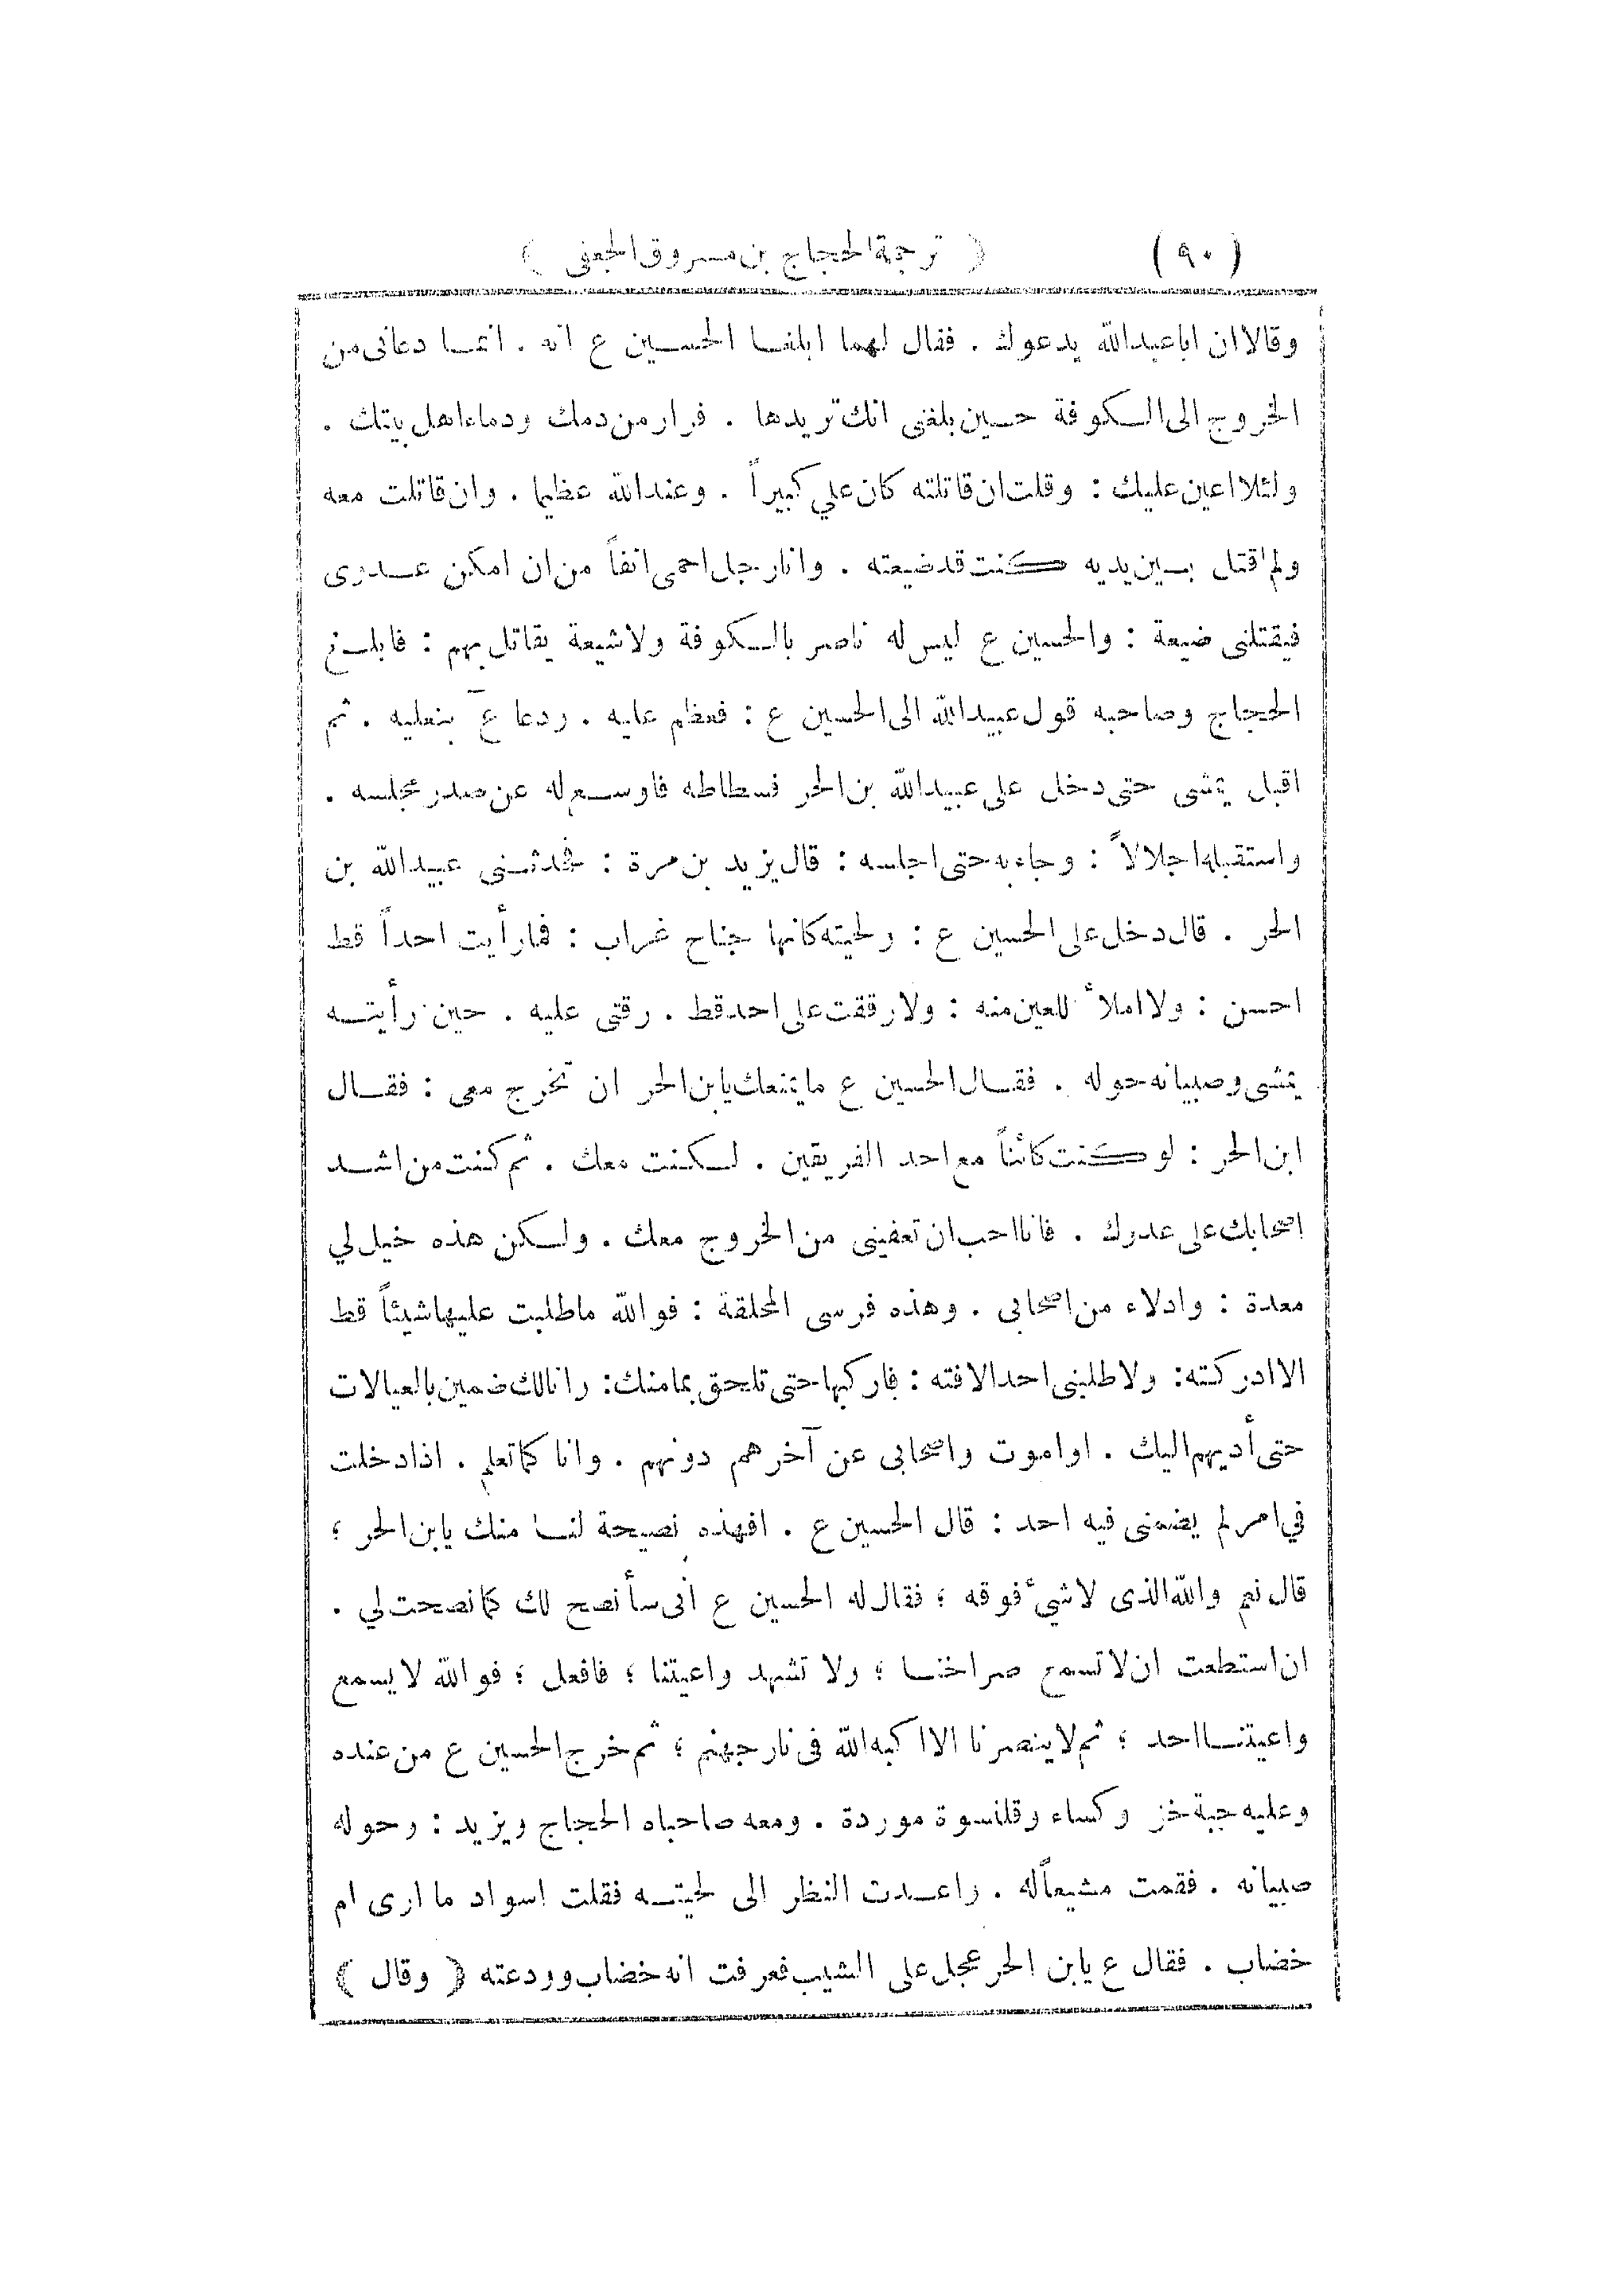 (٩٠) ( ترجمة الحجاج بن مسروق الجعفي )
وقالا ان اباعبدالله يدعوك . فقال لهما ابلغا الحسين ع انه . انما دعاني من
الخروج الى الكوفة حين بلغني انك تريدها . فرار من دمك ودماء اهل بيتك .
ولئلا اعين عليك : وقلت ان قاتلته كان علي كبيراً . وعندالله عظيما . وان قاتلت معه
ولم اقتل بين يديه كنت قد ضيعته . وانا رجل احمى انفاً من ان امكن عدوي
فيقتلني ضيعة : والحسين ع ليس له ناصر بالكوفة ولا شيعة يقاتل بهم : فابلغ
الحجاج وصاحبه قول عبيدالله الى الحسين ع : فعظم عليه . ودعا ع بنعليه . ثم
اقبل يمشى حتى دخل على عبيدالله بن الحر فسطاطه فاوسع له عن صدر مجلسه .
واستقبله اجلالاً : وجاء به حتى اجلسه : قال يزيد بن مرة : فحدثني عبيدالله بن
الحر . قال دخل على الحسين ع : ولحيته كانها جناح غراب : فما رأيت احداً قط
احسن : ولا املأ للعين منه : ولا رققت على احد قط . رقتي عليه . حين رأيته
يمشى وصبيانه حوله . فقال الحسين ع ما يمنعك يابن الحر ان تخرج معي : فقال
ابن الحر : لو كنت كائناً مع احد الفريقين . لكنت معك . ثم كنت من اشد
اصحابك على عدوك . فانا احب ان تعفيني من الخروج معك . ولكن هذه خيل لي
معدة : وادلاء من اصحابي . وهذه فرسي المحلقة : فوالله ما طلبت عليها شيئاً قط
الا ادركته: ولا طلبني احد الا فته : فاركبها حتى تلحق بمامنك: وانا لك ضمين بالعيالات
حتى أديهم اليك . او اموت واصحابي عن آخرهم دونهم . وانا كما تعلم . اذا دخلت
في امر لم يضمني فيه احد : قال الحسين ع . افهذه نصيحة لنا منك يابن الحر ؛
قال نعم والله الذى لا شيء فوقه ؛ فقال له الحسين ع اني سأنصح لك كما نصحت لي .
ان استطعت ان لا تسمع صراخنا ؛ ولا تشهد واعيتنا ؛ فافعل ؛ فوالله لا يسمع
واعيتنا احد ؛ ثم لا ينصرنا الا اكبه الله في نار جهنم ؛ ثم خرج الحسين ع من عنده
وعليه جبة خز وكساء وقلنسوة موردة . ومعه صاحباه الحجاج ويزيد : وحوله
صبيانه . فقمت مشيعاً له . واعدت النظر الى لحيته فقلت اسواد ما ارى ام
خضاب . فقال ع يابن الحر عجل على الشيب فعرفت انه خضاب وودعته ( وقال )